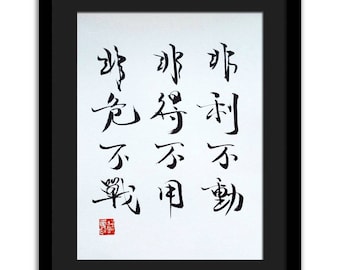 非利不動
非得不用
非危不戰